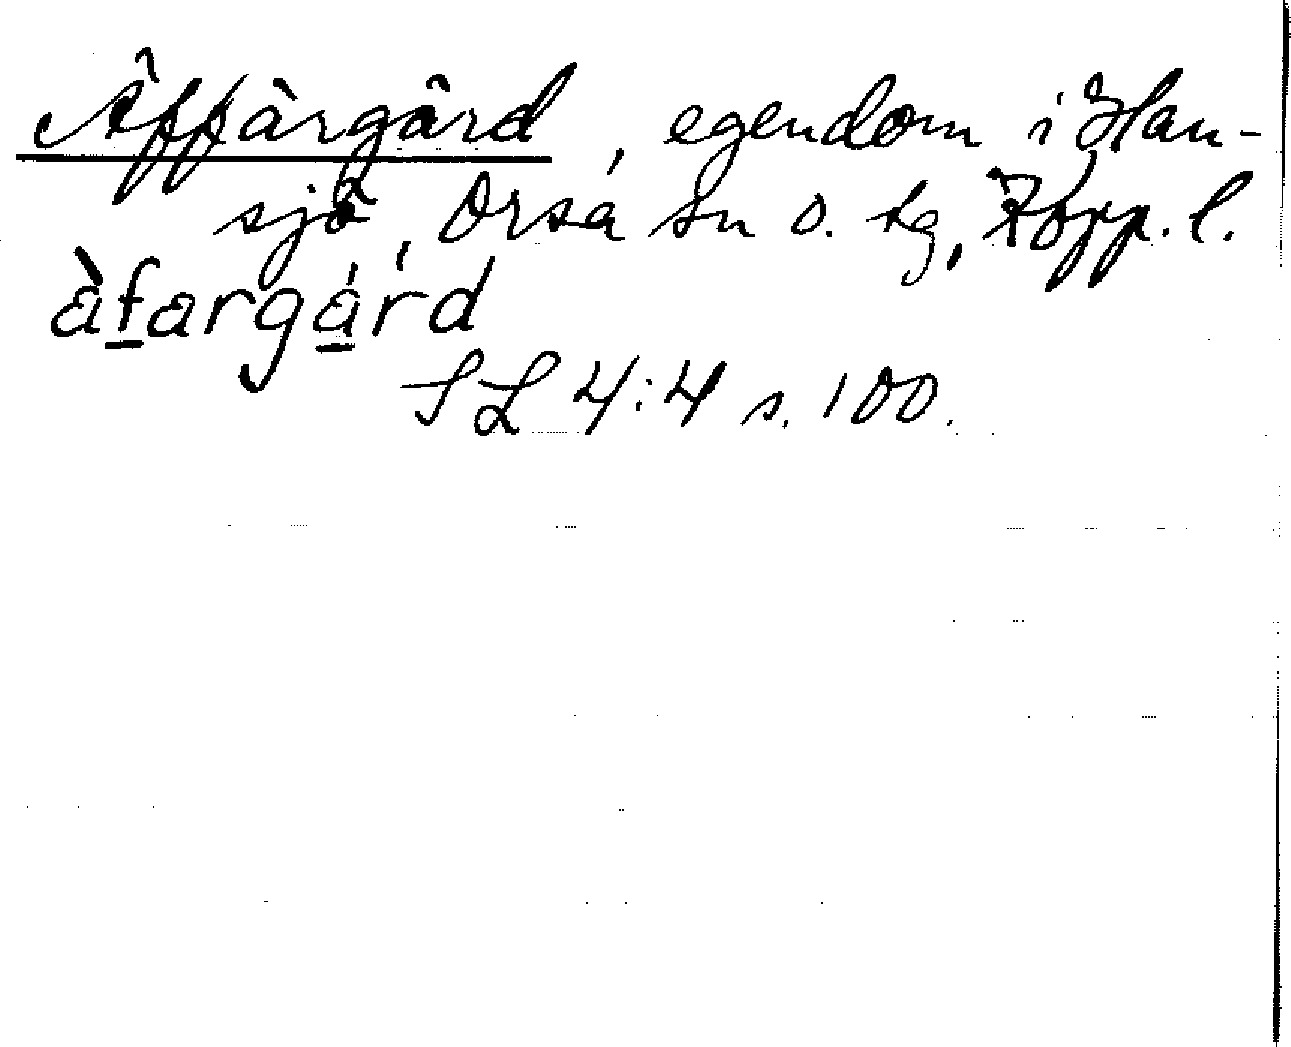 Åffàrgård, egendom i Han-
sjö, Orsa sn o. tg, Kopp. l.
àfargárd
SL 4:4 s. 100.